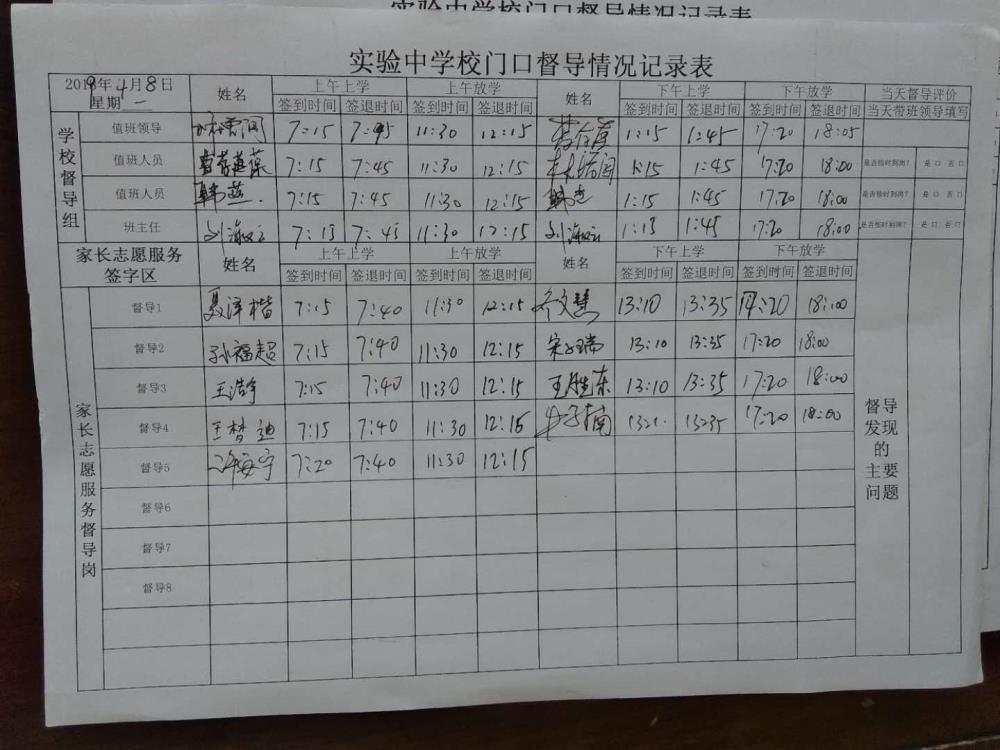 实验中学校门口督导情况记录表
实验中学校门口督导情况记录表
2019年4月8日 星期一 姓名 上午上学 上午放学 姓名 下午上学 下午放学 当天督导评价
签到时间 签退时间 签到时间 签退时间 签到时间 签退时间 签到时间 签退时间 当天带班领导填写
学校督导组
值班领导 7:15 7:45 11:30 12:15 1:15 1:45 17:20 18:05
值班人员 7:15 7:45 11:30 12:15 1:15 1:45 17:20 18:00 是否按时到岗? 是口 否口
值班人员 韩燕 7:15 7:45 11:30 12:15 1:15 1:45 17:20 18:00 是否按时到岗? 是口 否口
班主任 刘海云 7:15 7:45 11:30 12:15 刘海云 1:15 1:45 17:20 18:00 是否按时到岗? 是口 否口
家长志愿服务签字区 姓名 上午上学 上午放学 姓名 下午上学 下午放学
签到时间 签退时间 签到时间 签退时间 签到时间 签退时间 签到时间 签退时间
家长志愿服务督导岗
督导1 聂泽楷 7:15 7:40 11:30 12:15 齐文慧 13:10 13:35 17:20 18:00
督导2 孙福超 7:15 7:40 11:30 12:15 13:10 13:35 17:20 18:00
督导3 王浩宇 7:15 7:40 11:30 12:15 王胜东 13:10 13:35 17:20 18:00
督导4 王梦迪 7:15 7:40 11:30 12:15 17:20 18:00
督导5 许海宁 7:20 7:40 11:30 12:15
督导6
督导7
督导8
督导
发现
的
主要
问题